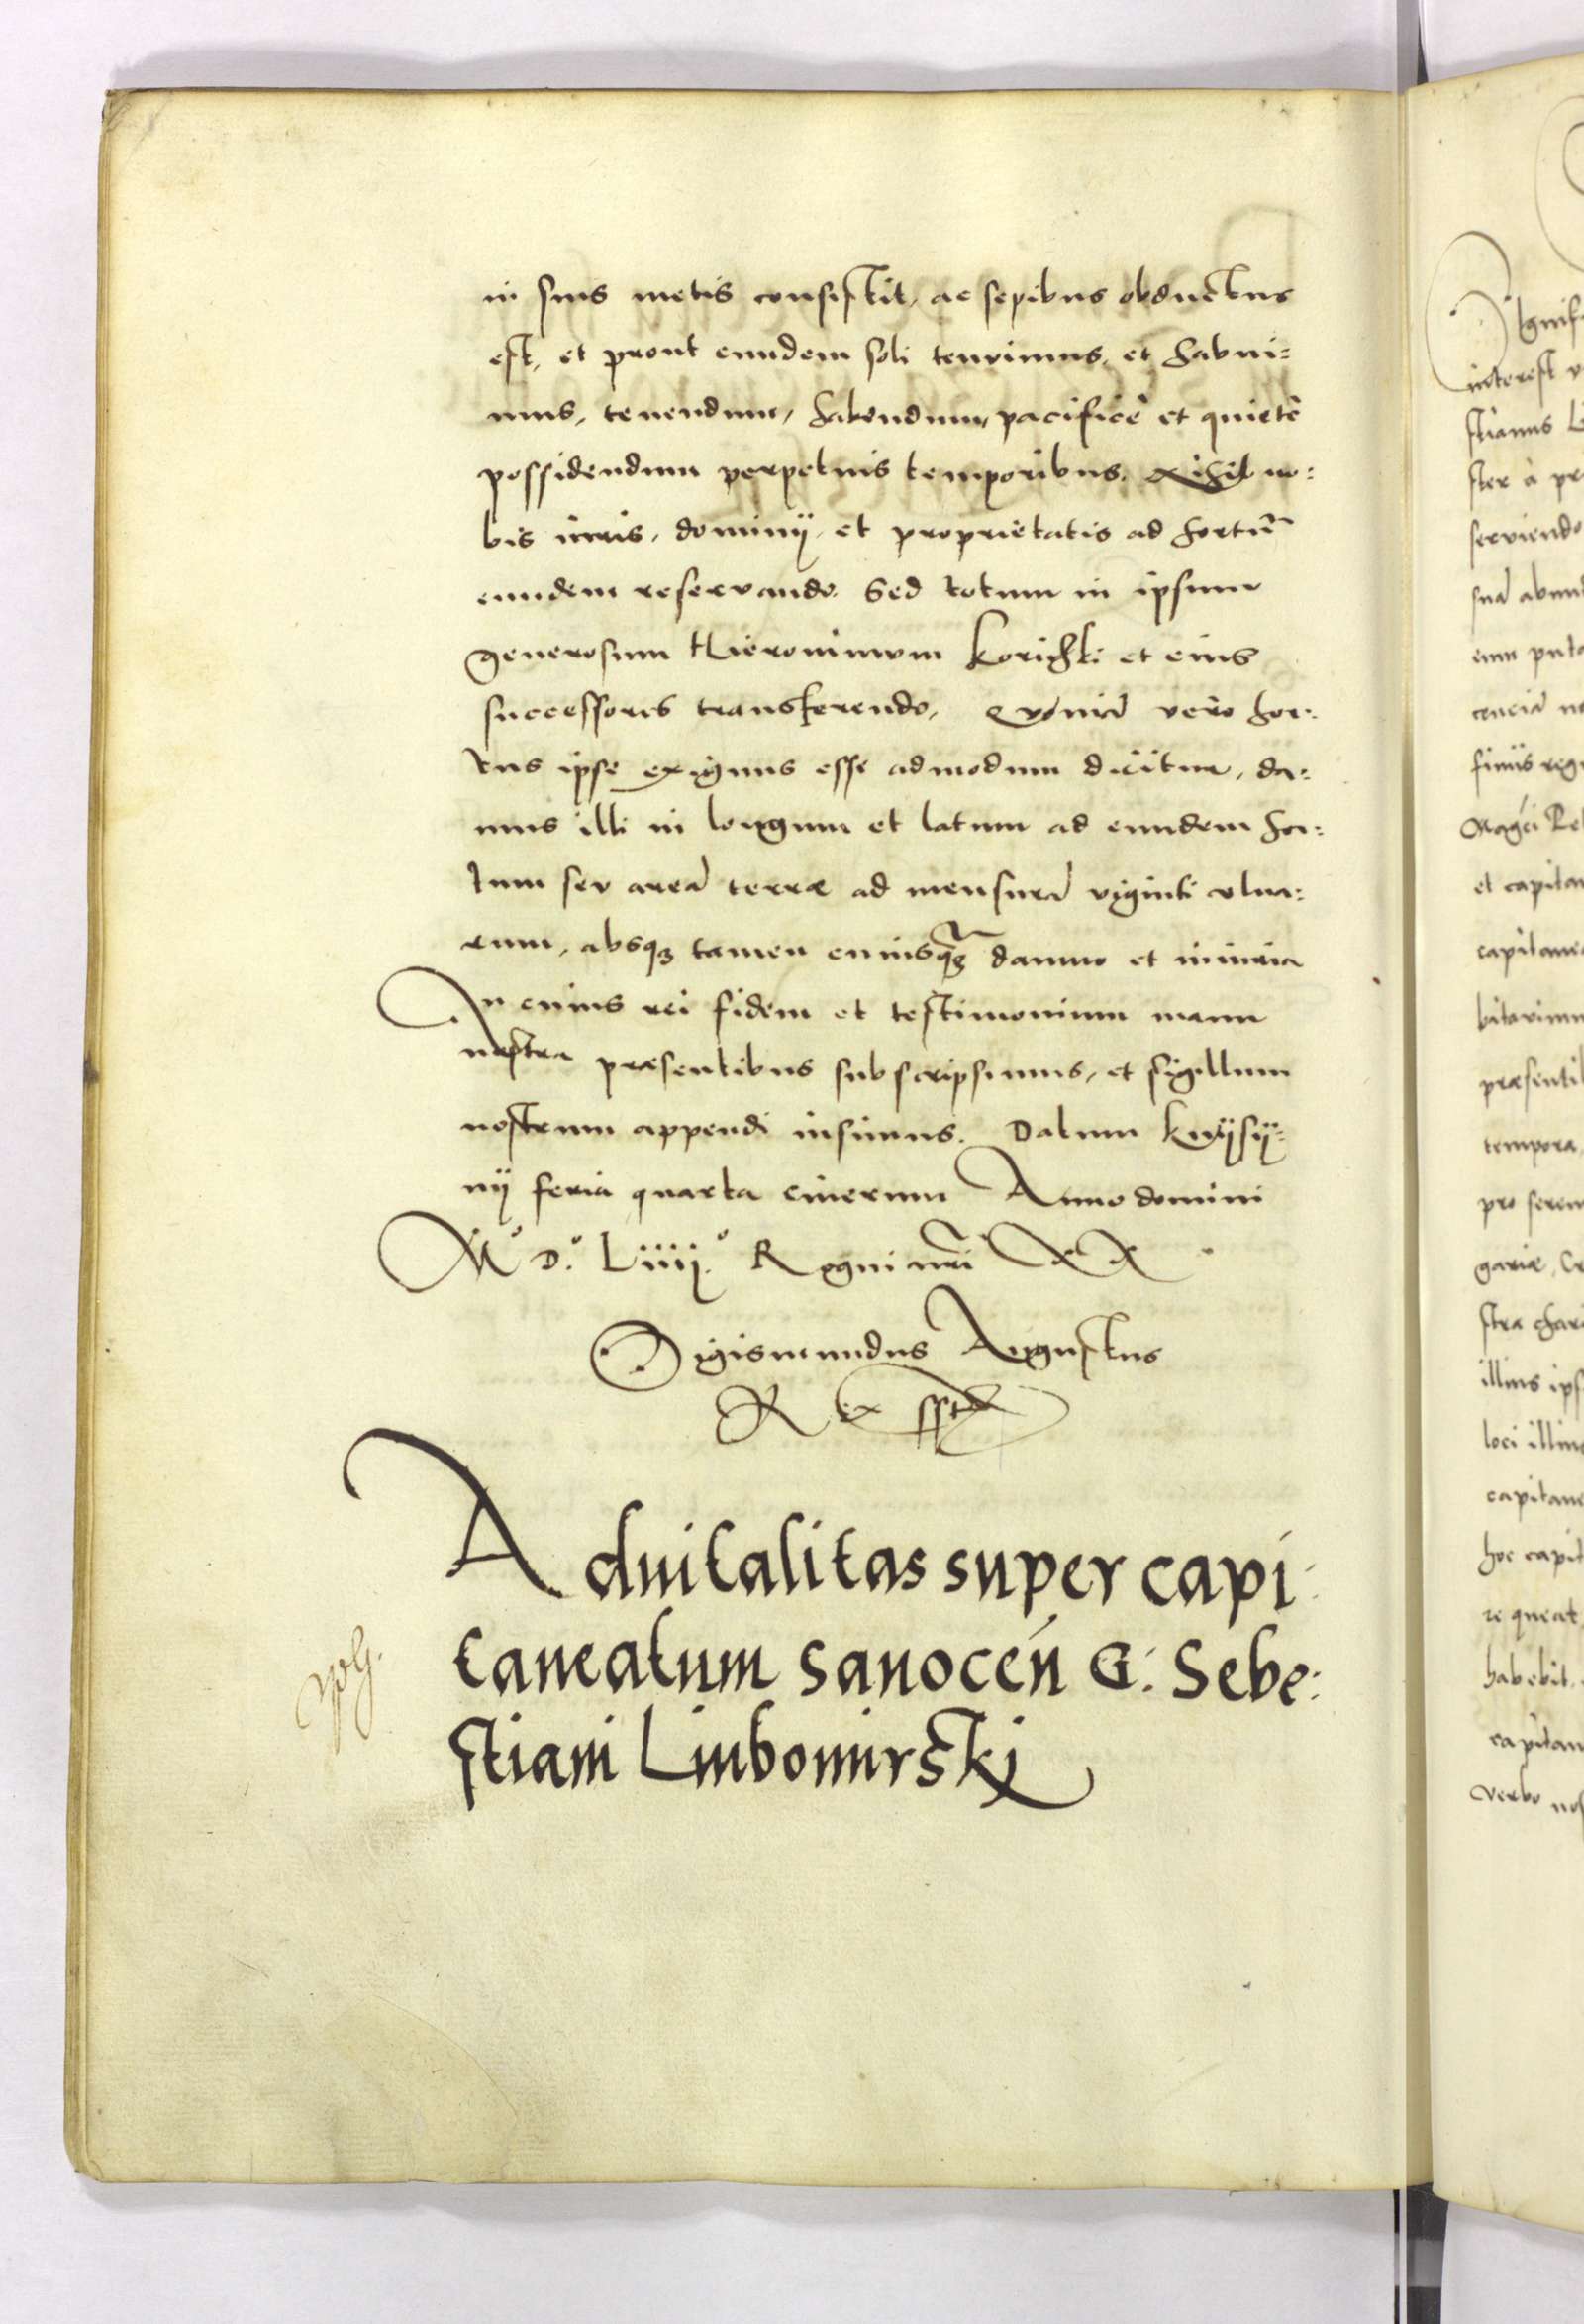 in suis metis consistit, ac sepibus obductus
est, et prout eundem soli tenuimus, et habui=
mus, tenendum, habendum, pacificè et quietè
possidendum perpetuis temporibus. Nihil no:
bis iuris, dominy, et proprietatis ad hortũ
eundem reservando. Sed totum in ipsum
generosum Hieronimum Korichki et eius
successores transferendo, Quoniã vero hor:
tus ipse exiguus esse admodum dicitur, da:
mus illi in longum et latum ad eundem hor:
tum seu areã terræ ad mensurã viginti ulna:
rum, absq3 tamen cuiusq3 damno et iniuria
In cuius rei fidem et testimonium manu
nostra præsentibus subscripsimus, et sigillum
nostrum appendi iussimus. Datum Knÿsÿ=
nÿ feria quarta cinerum Anno domini
M.° D.° Liiij.° Regni nrĩ XX
Sigismundus Augustus
Rex sst
Advitalitas super capi:
taneatum Sanocen̄ G: Seba:
stiani Liubomirski
Signifi
interest
stianus
ster à
serviendo
suã
eum
finiis
et
capitane
præsenti
tempora,
pro
gariæ,
stra
illius
loci illius
capitane
hoc capit
re queat
habebit
capitan
verbo